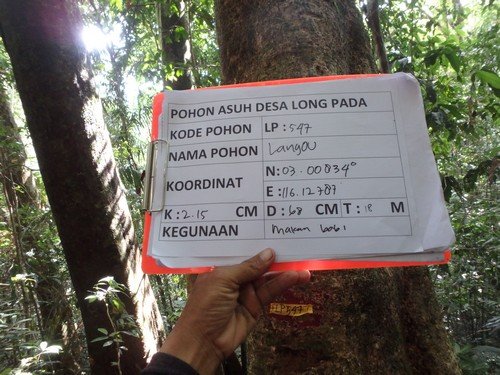 POHON ASUH DESA LONG PADA
KODE POHON LP: 547
NAMA POHON Langou
KOORDINAT N: 03.00834°
E: 116.12787
K: 2.15 CM D: 68 CM T: 18 M
KEGUNAAN makan babi
LP547